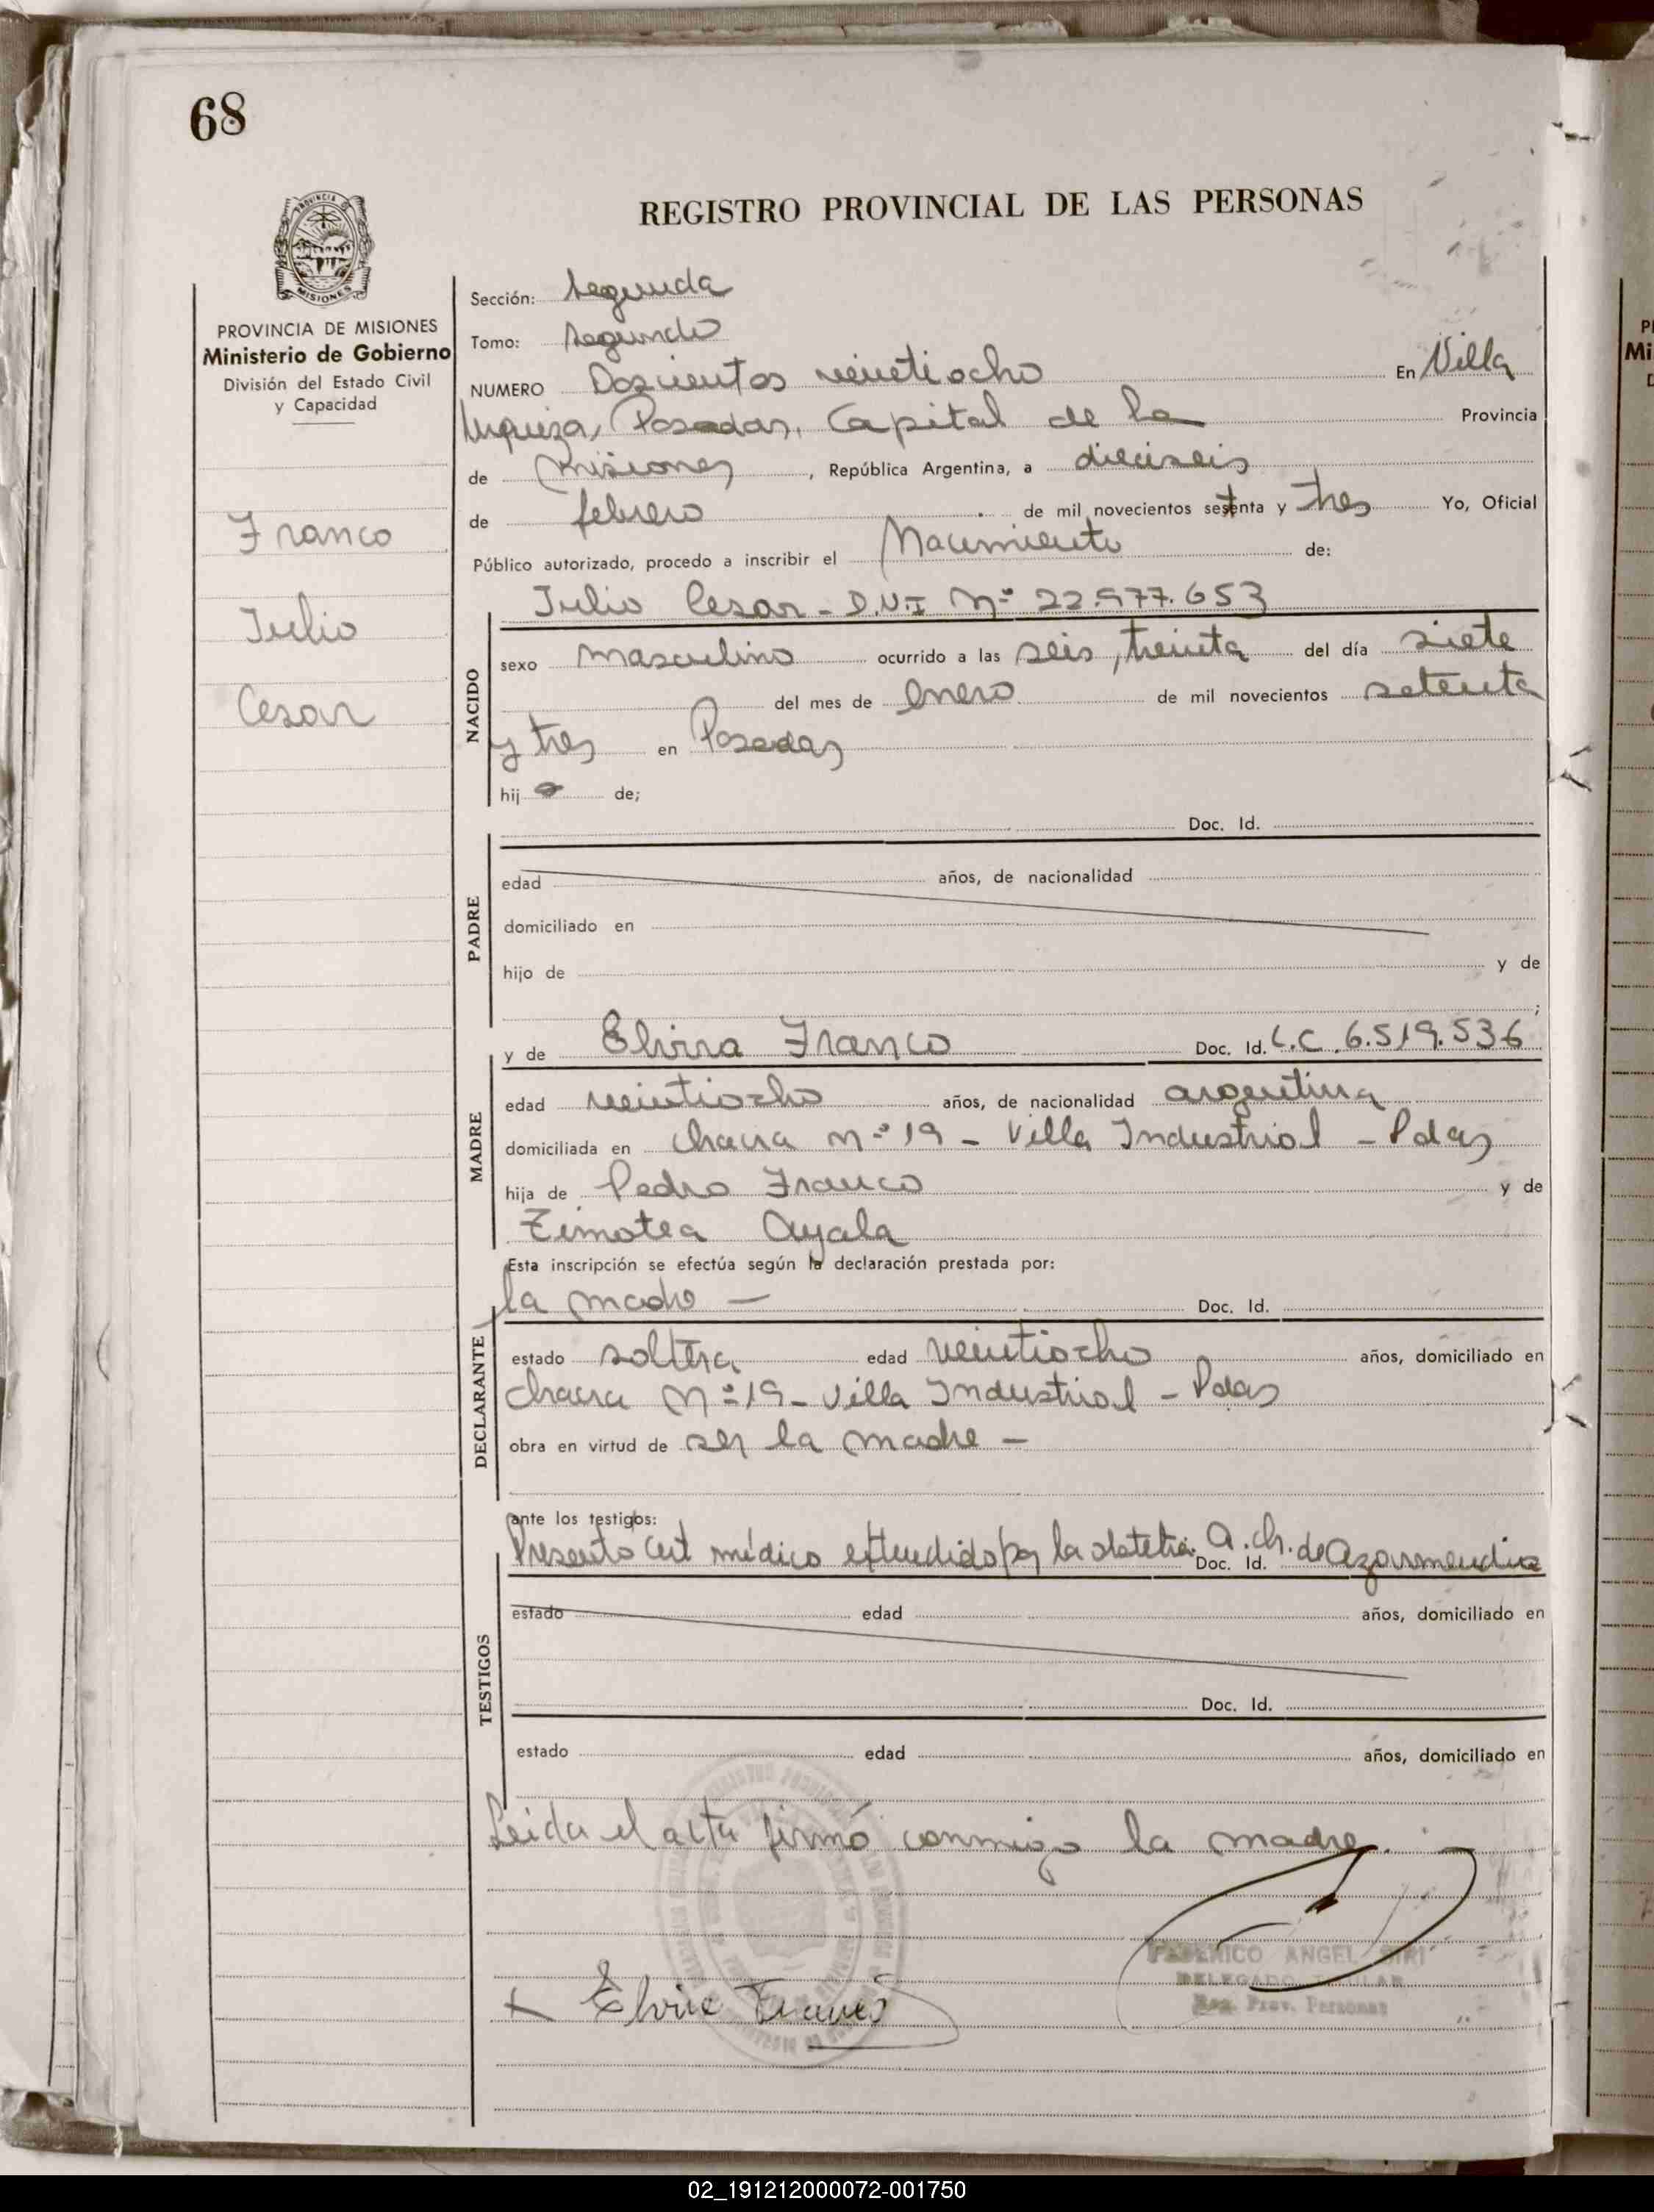 68
REGISTRO PROVINCIAL DE LAS PERSONAS
PROVINCIA DE MISIONES
Ministerio de Gobierno
División del Estado Civil
y Capacidad
Franco
Julio
Cesar
Sección: Segunda
Tomo: Segundo
NUMERO Doscientos veintiocho En Villa
Urquiza, Posadas, Capital de la Provincia
de Misiones, República Argentina, a dieciseis
de febrero de mil novecientos setenta y tres Yo, Oficial
Público autorizado, procedo a inscribir el Nacimiento de:
Julio Cesar - D.N.I Nº 22.977.653
NACIDO
sexo masculino ocurrido a las seis, treinta del día siete
del mes de Enero de mil novecientos setenta
y tres en Posadas
hijo de;
Doc. Id.
PADRE
edad años, de nacionalidad
domiciliado en
hijo de y de
;
MADRE
y de Elvira Franco Doc. Id. L.C. 6.519.536
edad veintiocho años, de nacionalidad argentina
domiciliada en chacra Nº 19 - Villa Industrial - Pdas
hija de Pedro Franco y de
Timotea Ayala
Esta inscripción se efectúa según la declaración prestada por:
la madre — Doc. Id.
DECLARANTE
estado soltera edad veintiocho años, domiciliado en
chacra Nº 19 - Villa Industrial - Pdas
obra en virtud de ser la madre —
ante los testigos:
Presento cert médico extendido por la obstetra. A. ch. de Azarmendia
Doc. Id.
TESTIGOS
estado edad años, domiciliado en
Doc. Id.
estado edad años, domiciliado en
Leida el acta firmó conmigo la madre.
Elvira Franco
FEDERICO ANGEL SIRI
DELEGADO TITULAR
Reg. Prov. Personas
02_191212000072-001750